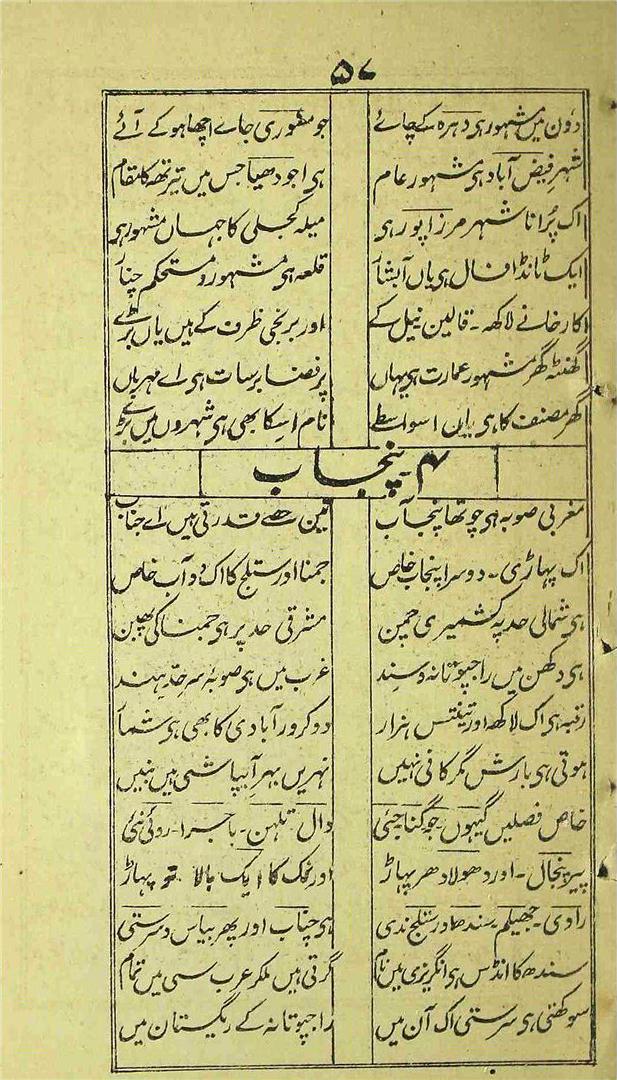 ۵۷
دَون میں مشہور ہی دہرہ کے چائے جو مسوری جاے اچھا ہو کے آئے
شہر فیض آباد ہی مشہور عام ہی اجودھیا جس میں تیرتھ کا مقام
اک پُرانا شہر مرزا پور ہی میلہ کجلی کا جہاں مشہور ہی
ایک ٹانڈا فال ہی یاں آبشار قلعہ ہی مشہور و مستحکم چنار
کارخانے لاکھ۔ قالین نیل کے اور برنجی ظرف کے ہیں یاں بڑے
گھنٹہ گھر مشہور عمارت ہی یہاں پُر فضا برسات ہی اے مہرباں
گھر مصنف کا ہی یاں اسواسطے نام اسکا بھی ہی شہروں میں بڑے
۴۔ پنجاب
مغربی صوبہ ہی چوتھا پنجاب تین حصے قدرتی ہیں اے جناب
اک پہاڑی۔ دوسرا پنجاب خاص جمنا اور ستلج کا اک دوآب خاص
ہی شمالی حد پہ کشمیری چمن مشرقی حد پر ہی جمنا کی پھبن
ہی دکھن میں راجپوتانہ و سند غرب میں ہی صوبۂ سرحد ہند
رقبہ ہی اک لاکھ اور تینتس ہزار دو کرور آبادی کا بھی ہی شمار
ہوتی ہی بارش مگر کافی نہیں نہریں بہر آبپاشی ہیں بنیں
خاص فصلیں گیہوں۔ جو گنا جئی دال تلہن۔ باجرا۔ روئی نئی
پیر پنجال۔ اور دھولادھر پہاڑ اور نمک کا ایک بالا تو پہاڑ
راوی۔ جھیلم۔ سندھ اور ستلج ندی ہی چناب اور پھر بیاس و سرستی
سندھ کا انڈس ہی انگریزی میں نام گرتی ہیں ملکر عرب سی میں تمام
سوکھتی ہی سرستی اک آن میں راجپوتانہ کے ریگستان میں